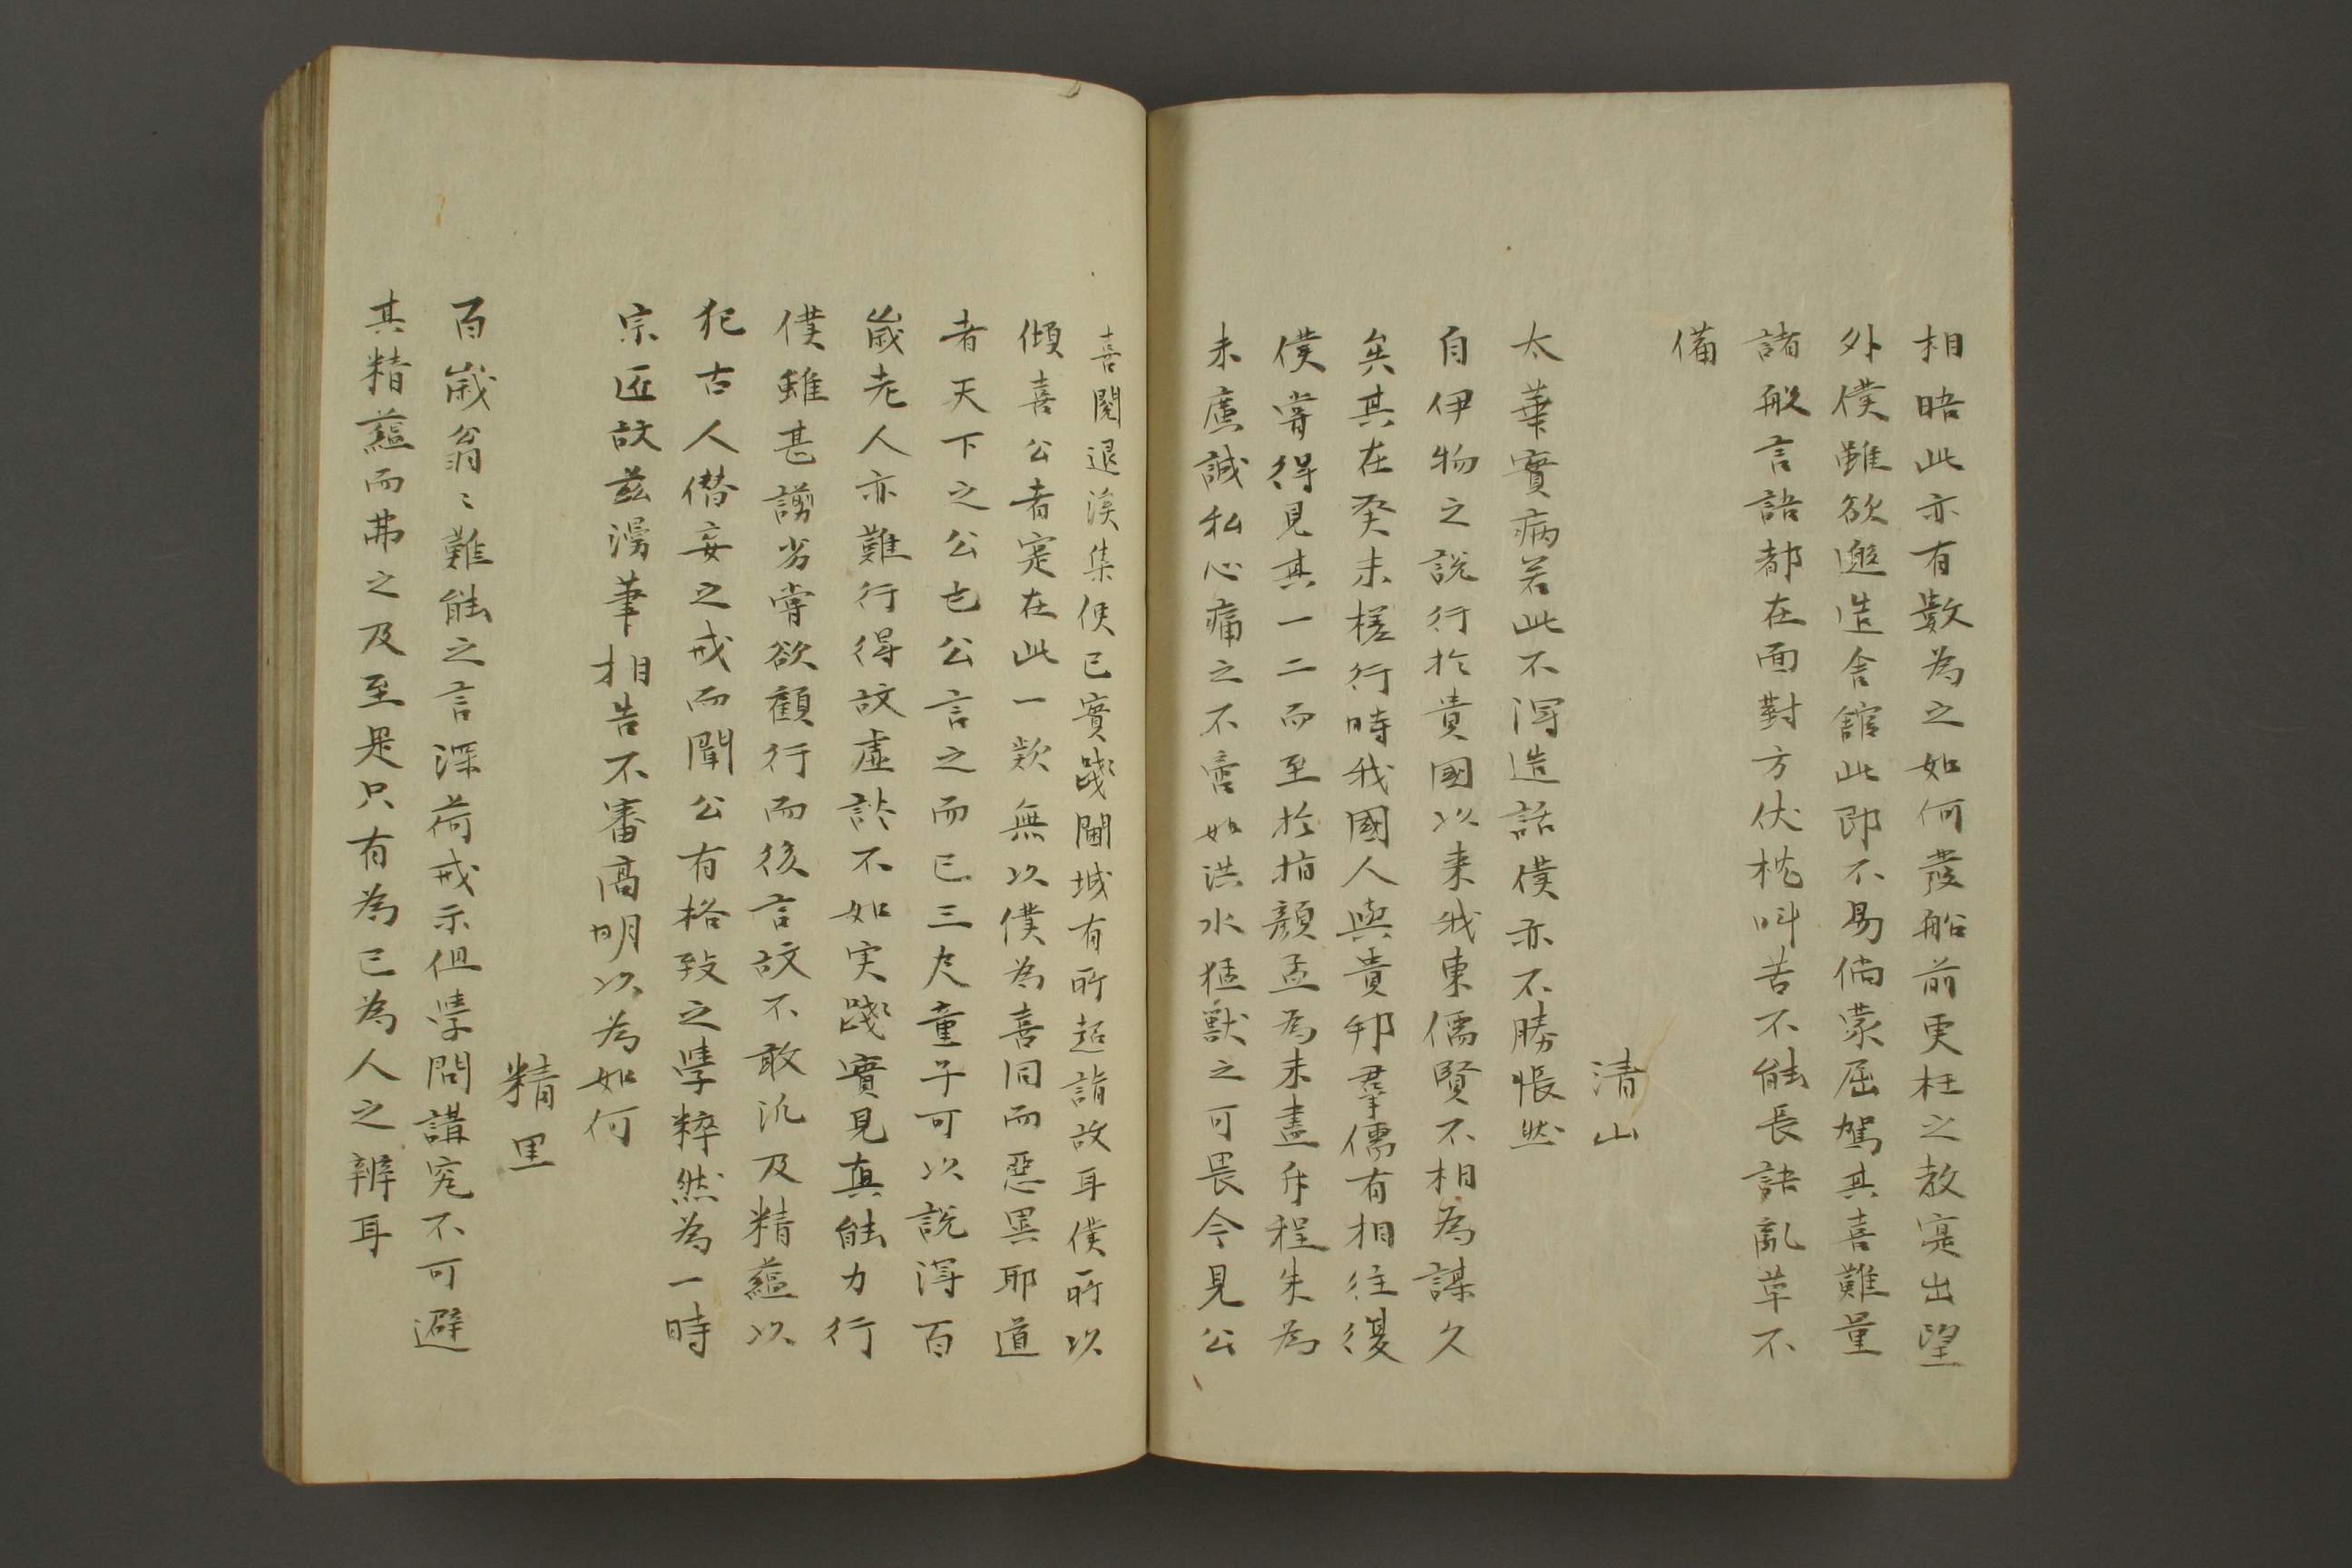 相晤此亦有數為之如何發船前更枉之教寔出望
外僕雖欲邀造舍館此即不易倘蒙屈駕其喜難量
諸般言語都在面對方伏枕呌苦不能長語亂草不
備
清山
太華實病若此不淂造話僕亦不勝悵然
自伊物之說行於貴國以来我東儒賢不相為謀久
矣其在癸未槎行時我國人與貴邦羣儒有相往復
僕甞得見其一二而至於指顏孟為未盡斥程朱為
未廣誠私心痛之不啻如洪水猛獣之可畏今見公
喜閱退溪集便已實踐閫域有所超詣故耳僕所以
傾喜公者寔在此一欵無以僕為喜同而惡異耶道
者天下之公也公言之而已三尺童子可以說淂百
歲老人亦難行得故虛談不如実踐實見真能力行
僕雖甚謭劣甞欲顧行而後言故不敢汎及精蘊以
犯古人僭妄之戒而聞公有格致之學粹然為一時
宗匠故兹漫筆相告不審高明以為如何
精里
百歲翁〻難能之言深荷戒示但學問講究不可避
其精蘊而弗之及至是只有為已為人之辨耳